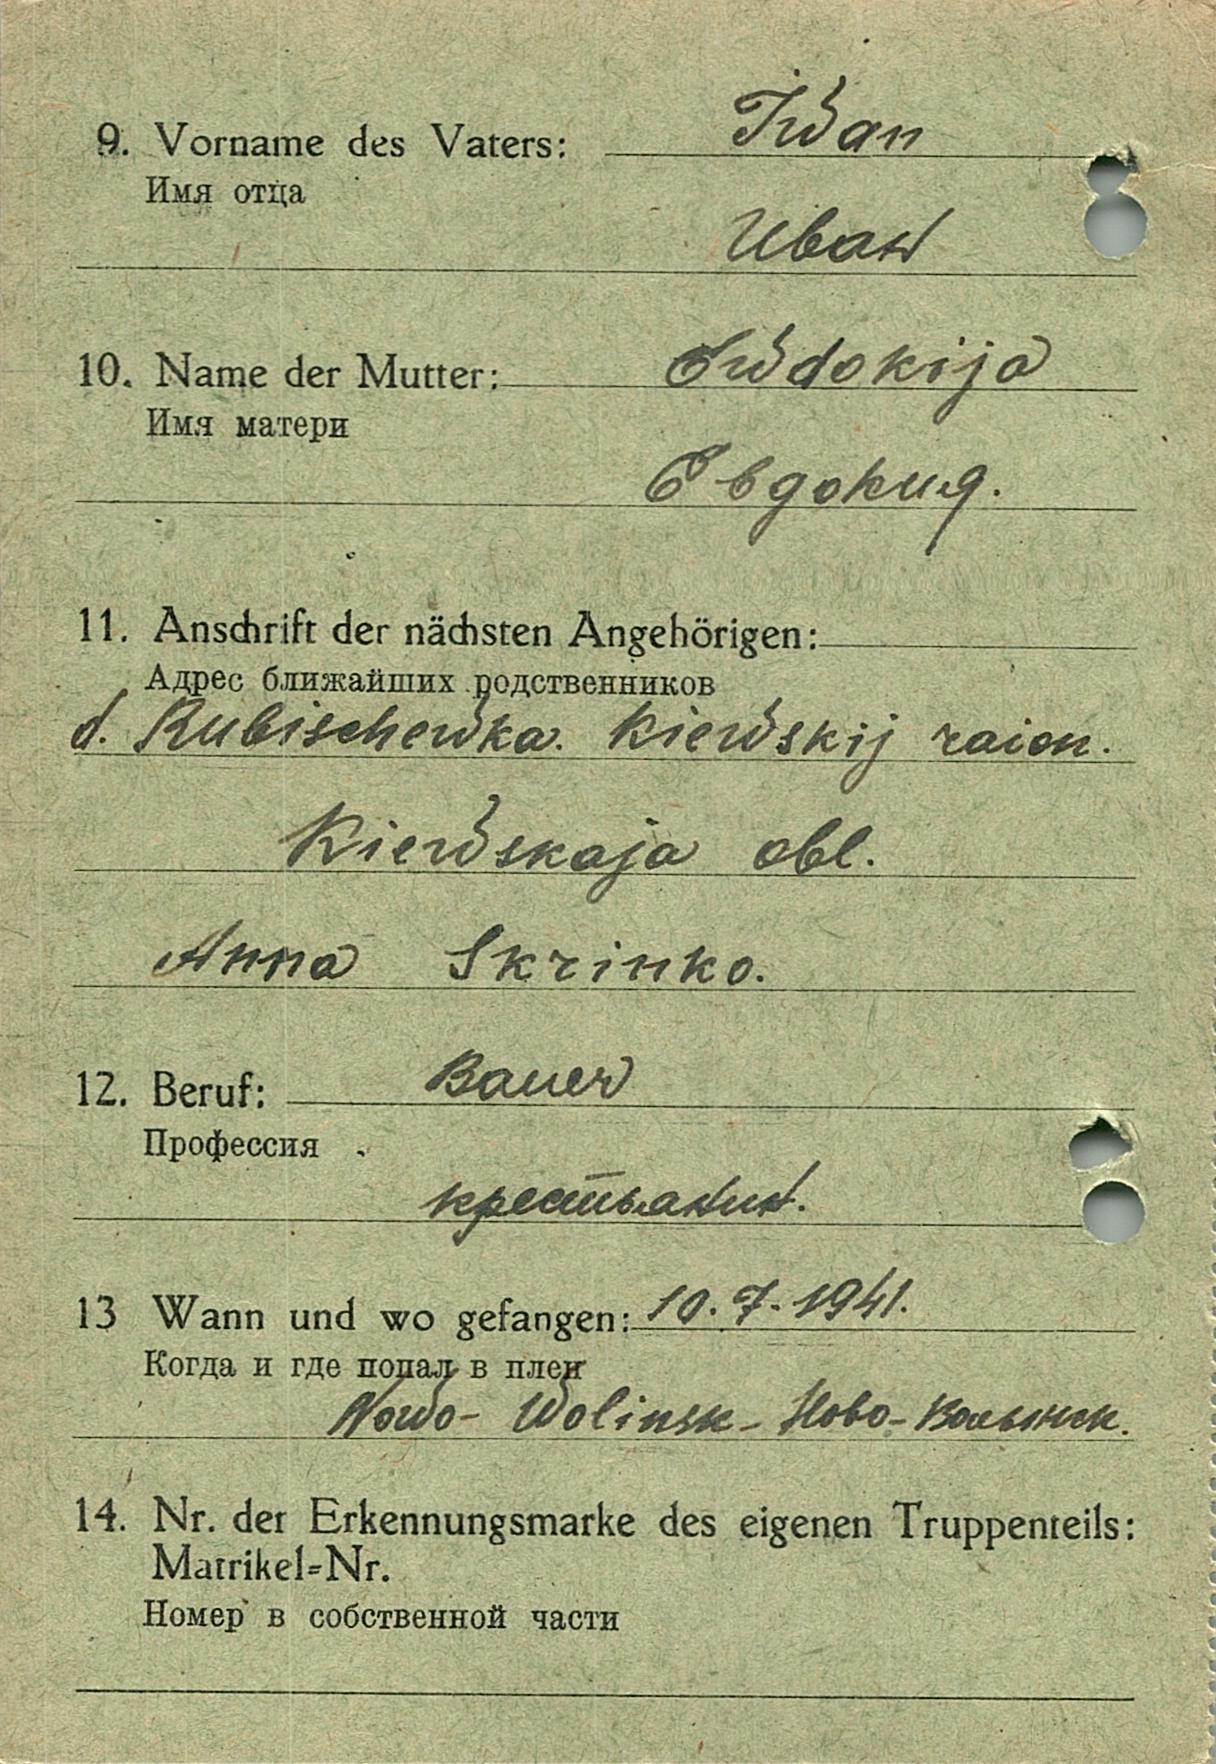 9. Vorname des Vaters: Iwan
Имя отца
Иван
10. Name der Mutter: Ewdokija
Имя матери
Евдокия.
11. Anschrift der nächsten Angehörigen:
Адрес ближайших родственников
d. Rubischewka. Kiewskij raion.
Kiewskaja obl.
Anna Skrinko.
12. Beruf: Bauer
Профессия
крестьянин.
13 Wann und wo gefangen: 10.7.1941.
Когда и где попал в плен
Nowo-Wolinsk-Ново-Волынск.
14. Nr. der Erkennungsmarke des eigenen Truppenteils:
Matrikel-Nr.
Номер в собственной части